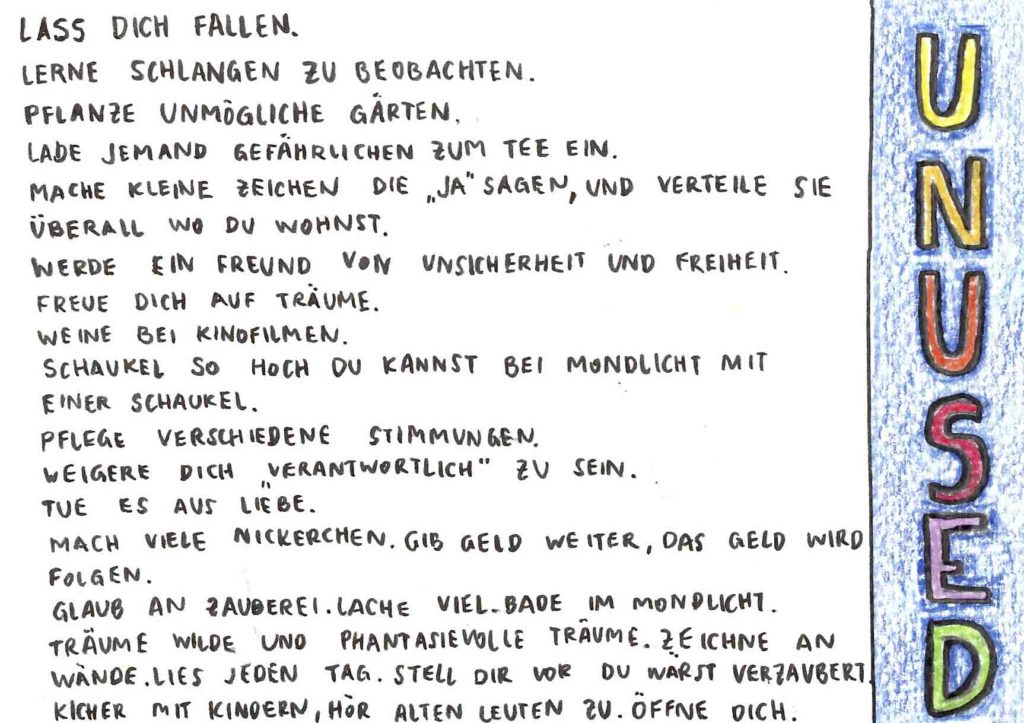 LASS DICH FALLEN.
LERNE SCHLANGEN ZU BEOBACHTEN.
PFLANZE UNMÖGLICHE GÄRTEN.
LADE JEMAND GEFÄHRLICHEN ZUM TEE EIN.
MACHE KLEINE ZEICHEN DIE „JA" SAGEN, UND VERTEILE SIE
ÜBERALL WO DU WOHNST.
WERDE EIN FREUND VON UNSICHERHEIT UND FREIHEIT.
FREUE DICH AUF TRÄUME.
WEINE BEI KINOFILMEN.
SCHAUKEL SO HOCH DU KANNST BEI MONDLICHT MIT
EINER SCHAUKEL.
PFLEGE VERSCHIEDENE STIMMUNGEN.
WEIGERE DICH „VERANTWORTLICH" ZU SEIN.
TUE ES AUS LIEBE.
MACH VIELE NICKERCHEN. GIB GELD WEITER, DAS GELD WIRD
FOLGEN.
GLAUB AN ZAUBEREI. LACHE VIEL. BADE IM MONDLICHT.
TRÄUME WILDE UND PHANTASIEVOLLE TRÄUME. ZEICHNE AN
WÄNDE. LIES JEDEN TAG. STELL DIR VOR DU WÄRST VERZAUBERT.
KICHER MIT KINDERN, HÖR ALTEN LEUTEN ZU. ÖFFNE DICH.
UNUSED